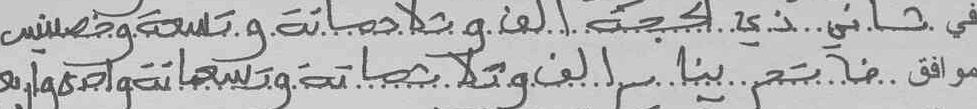 في ثاني ذي الحجة ألف وثلاثمائة وتسعة وخمسين
موافق فاتح يناير ألف وتسعمائة وواحد وأربعـ